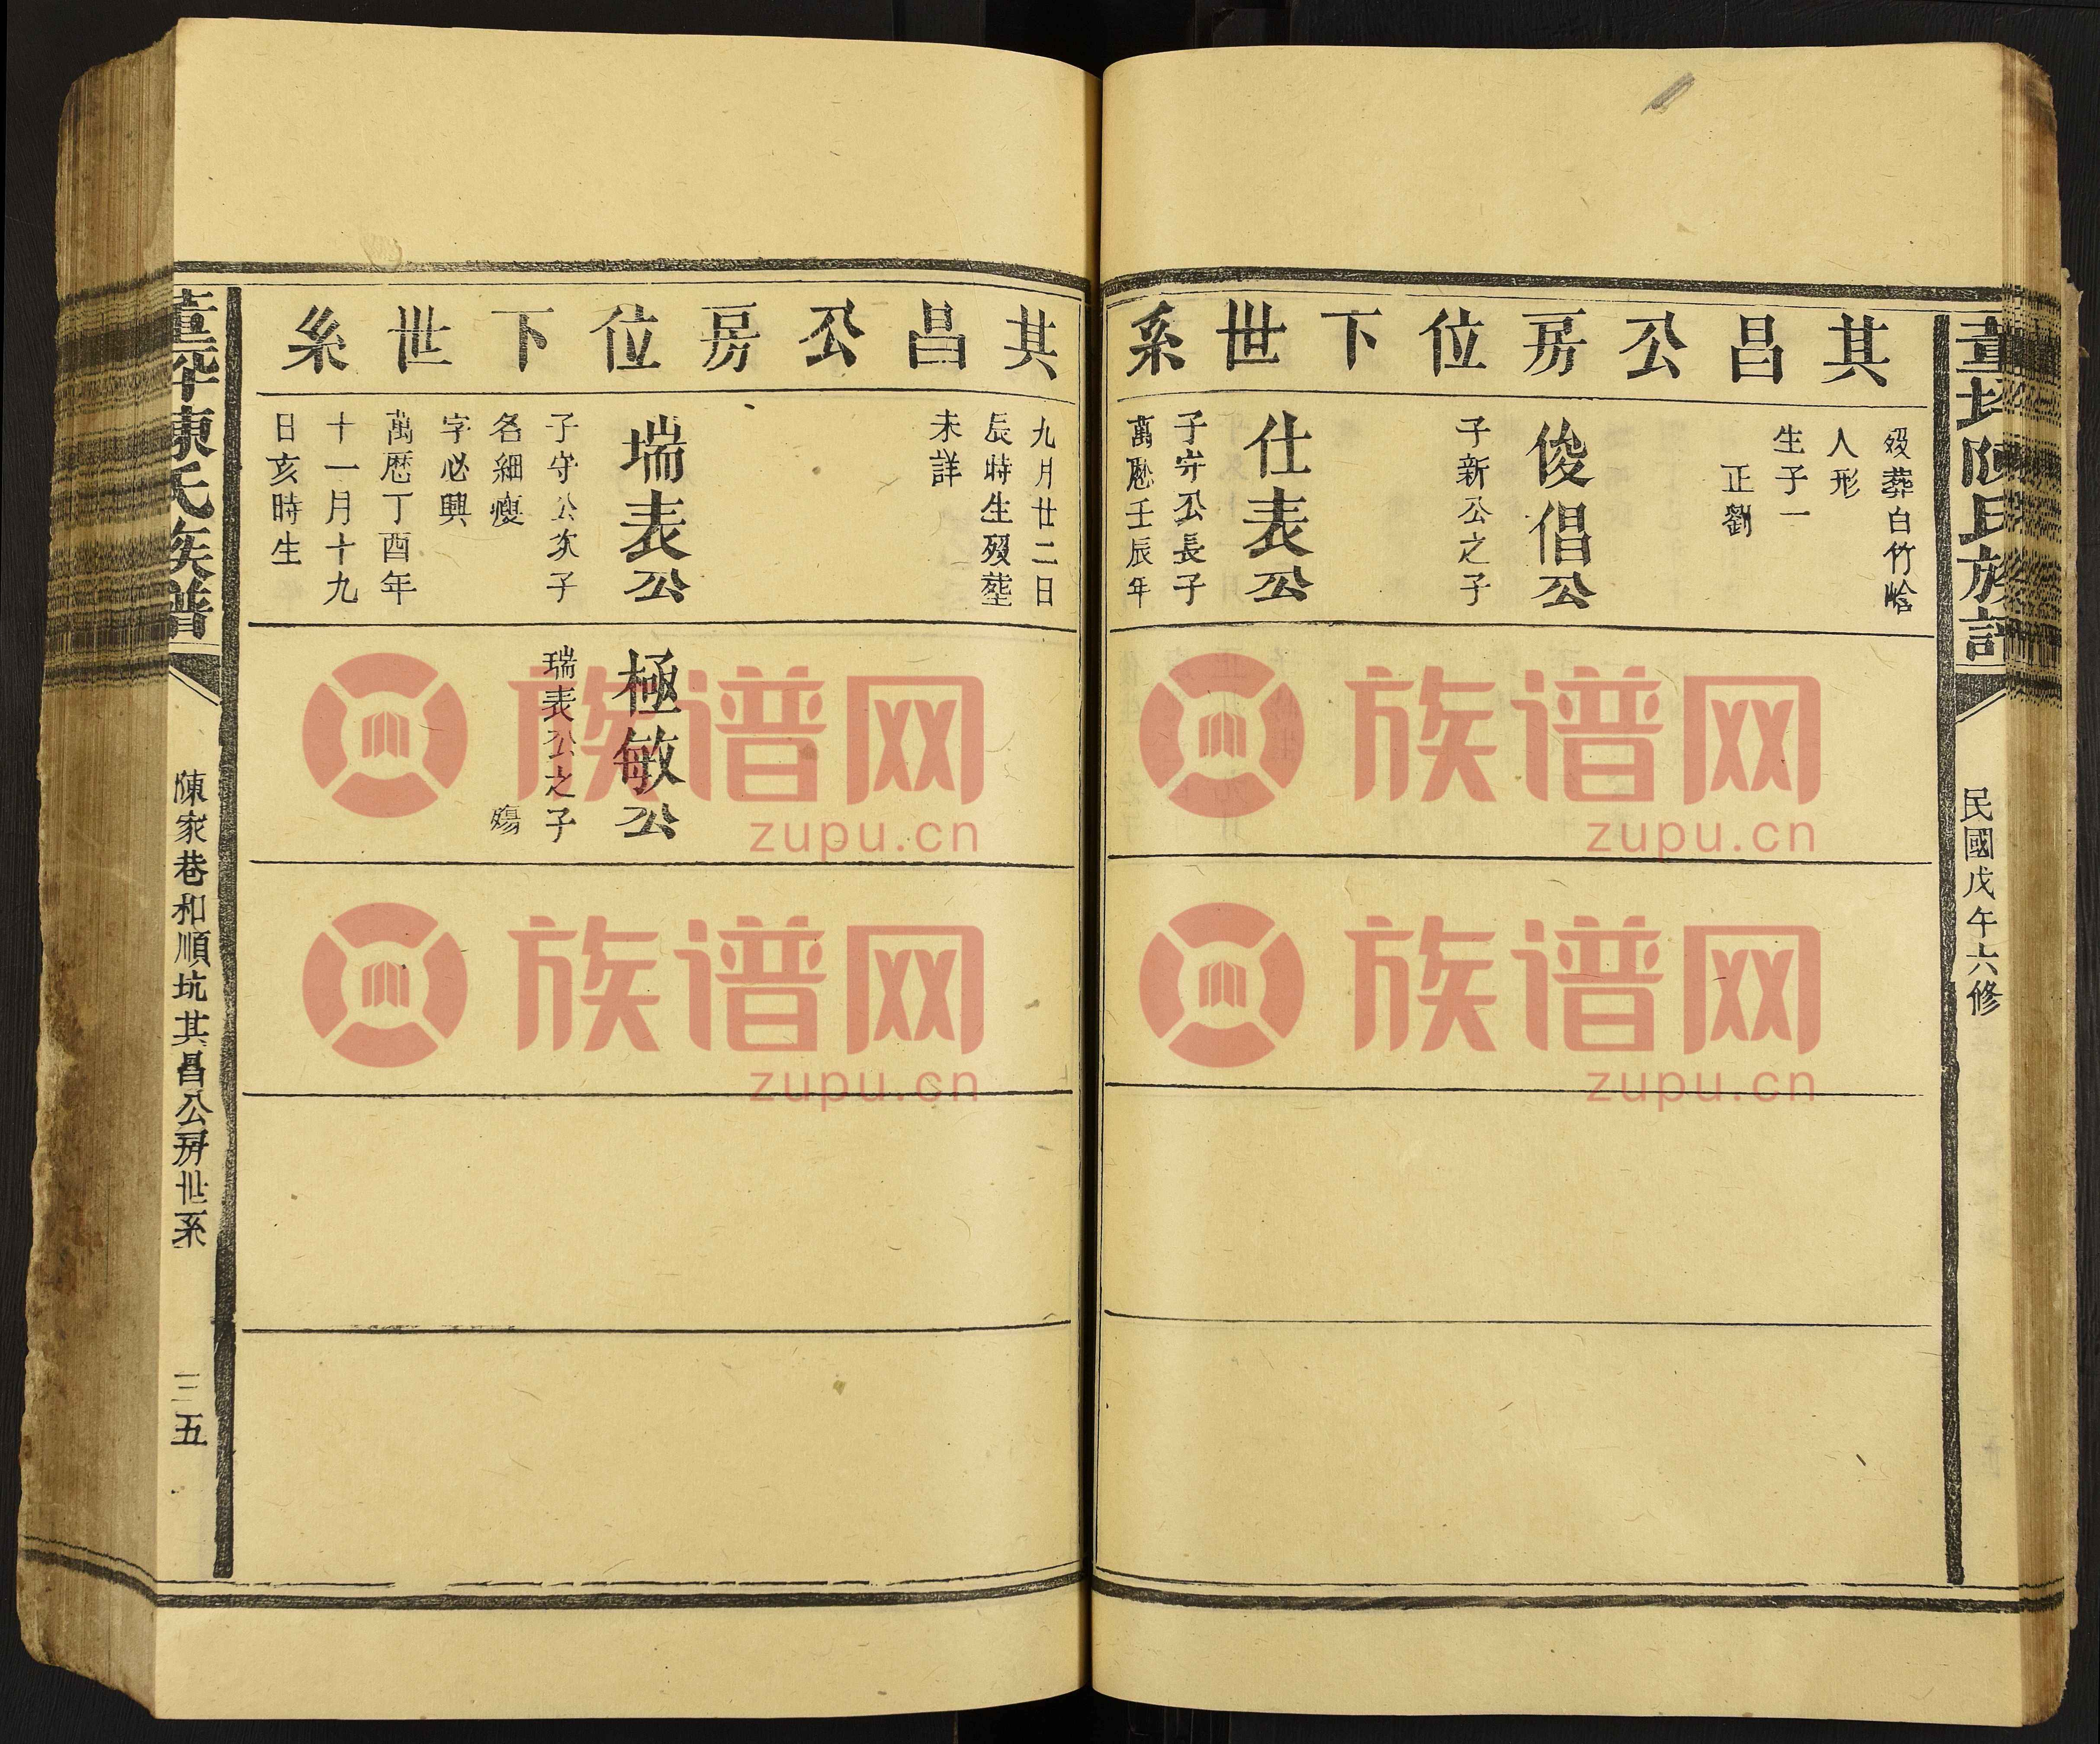 其昌公房位下世系
歿葬白竹
人形
生子一
正劉
俊倡公
子新公之子
仕表公
子守公長子
萬曆壬辰年
民國戊午六修
其昌公房位下世系
九月廿二日
辰時生歿塟
未詳
瑞表公
子守公次子
名細瘦
字必興
萬歷丁酉年
十一月十九
日亥時生
極敏公
瑞表公之子
殤
陳氏族譜
陳家巷和順坑其昌公房世系
三五
族谱网
zupu.cn
族谱网
zupu.cn
族谱网
zupu.cn
族谱网
zupu.cn